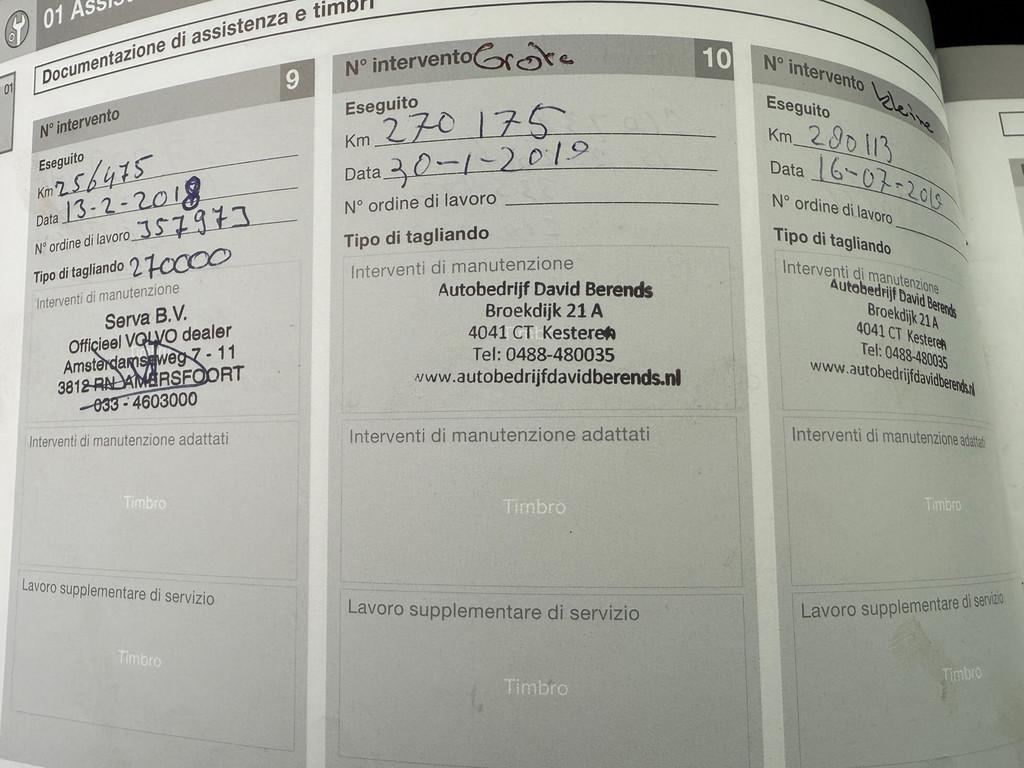 01
Documentazione di assistenza e timbri
01
N° intervento 9
Eseguito
Km 256475
Data 13-2-2018
N° ordine di lavoro 357973
Tipo di tagliando 270000
Interventi di manutenzione
Serva B.V.
Officieel VOLVO dealer
Amsterdamseweg 7 - 11
3812 RN AMERSFOORT
033 - 4603000
Interventi di manutenzione adattati
Timbro
Lavoro supplementare di servizio
Timbro
N° intervento 10
Eseguito
Km 270175
Data 30-1-2019
N° ordine di lavoro
Tipo di tagliando
Interventi di manutenzione
Autobedrijf David Berends
Broekdijk 21 A
4041 CT Kesteren
Tel: 0488-480035
www.autobedrijfdavidberends.nl
Interventi di manutenzione adattati
Timbro
Lavoro supplementare di servizio
Timbro
N° intervento kleine
Eseguito
Km 280113
Data 16-07-2019
N° ordine di lavoro
Tipo di tagliando
Interventi di manutenzione
Autobedrijf David Berends
Broekdijk 21 A
4041 CT Kesteren
Tel: 0488-480035
www.autobedrijfdavidberends.nl
Interventi di manutenzione adattati
Timbro
Lavoro supplementare di servizio
Timbro